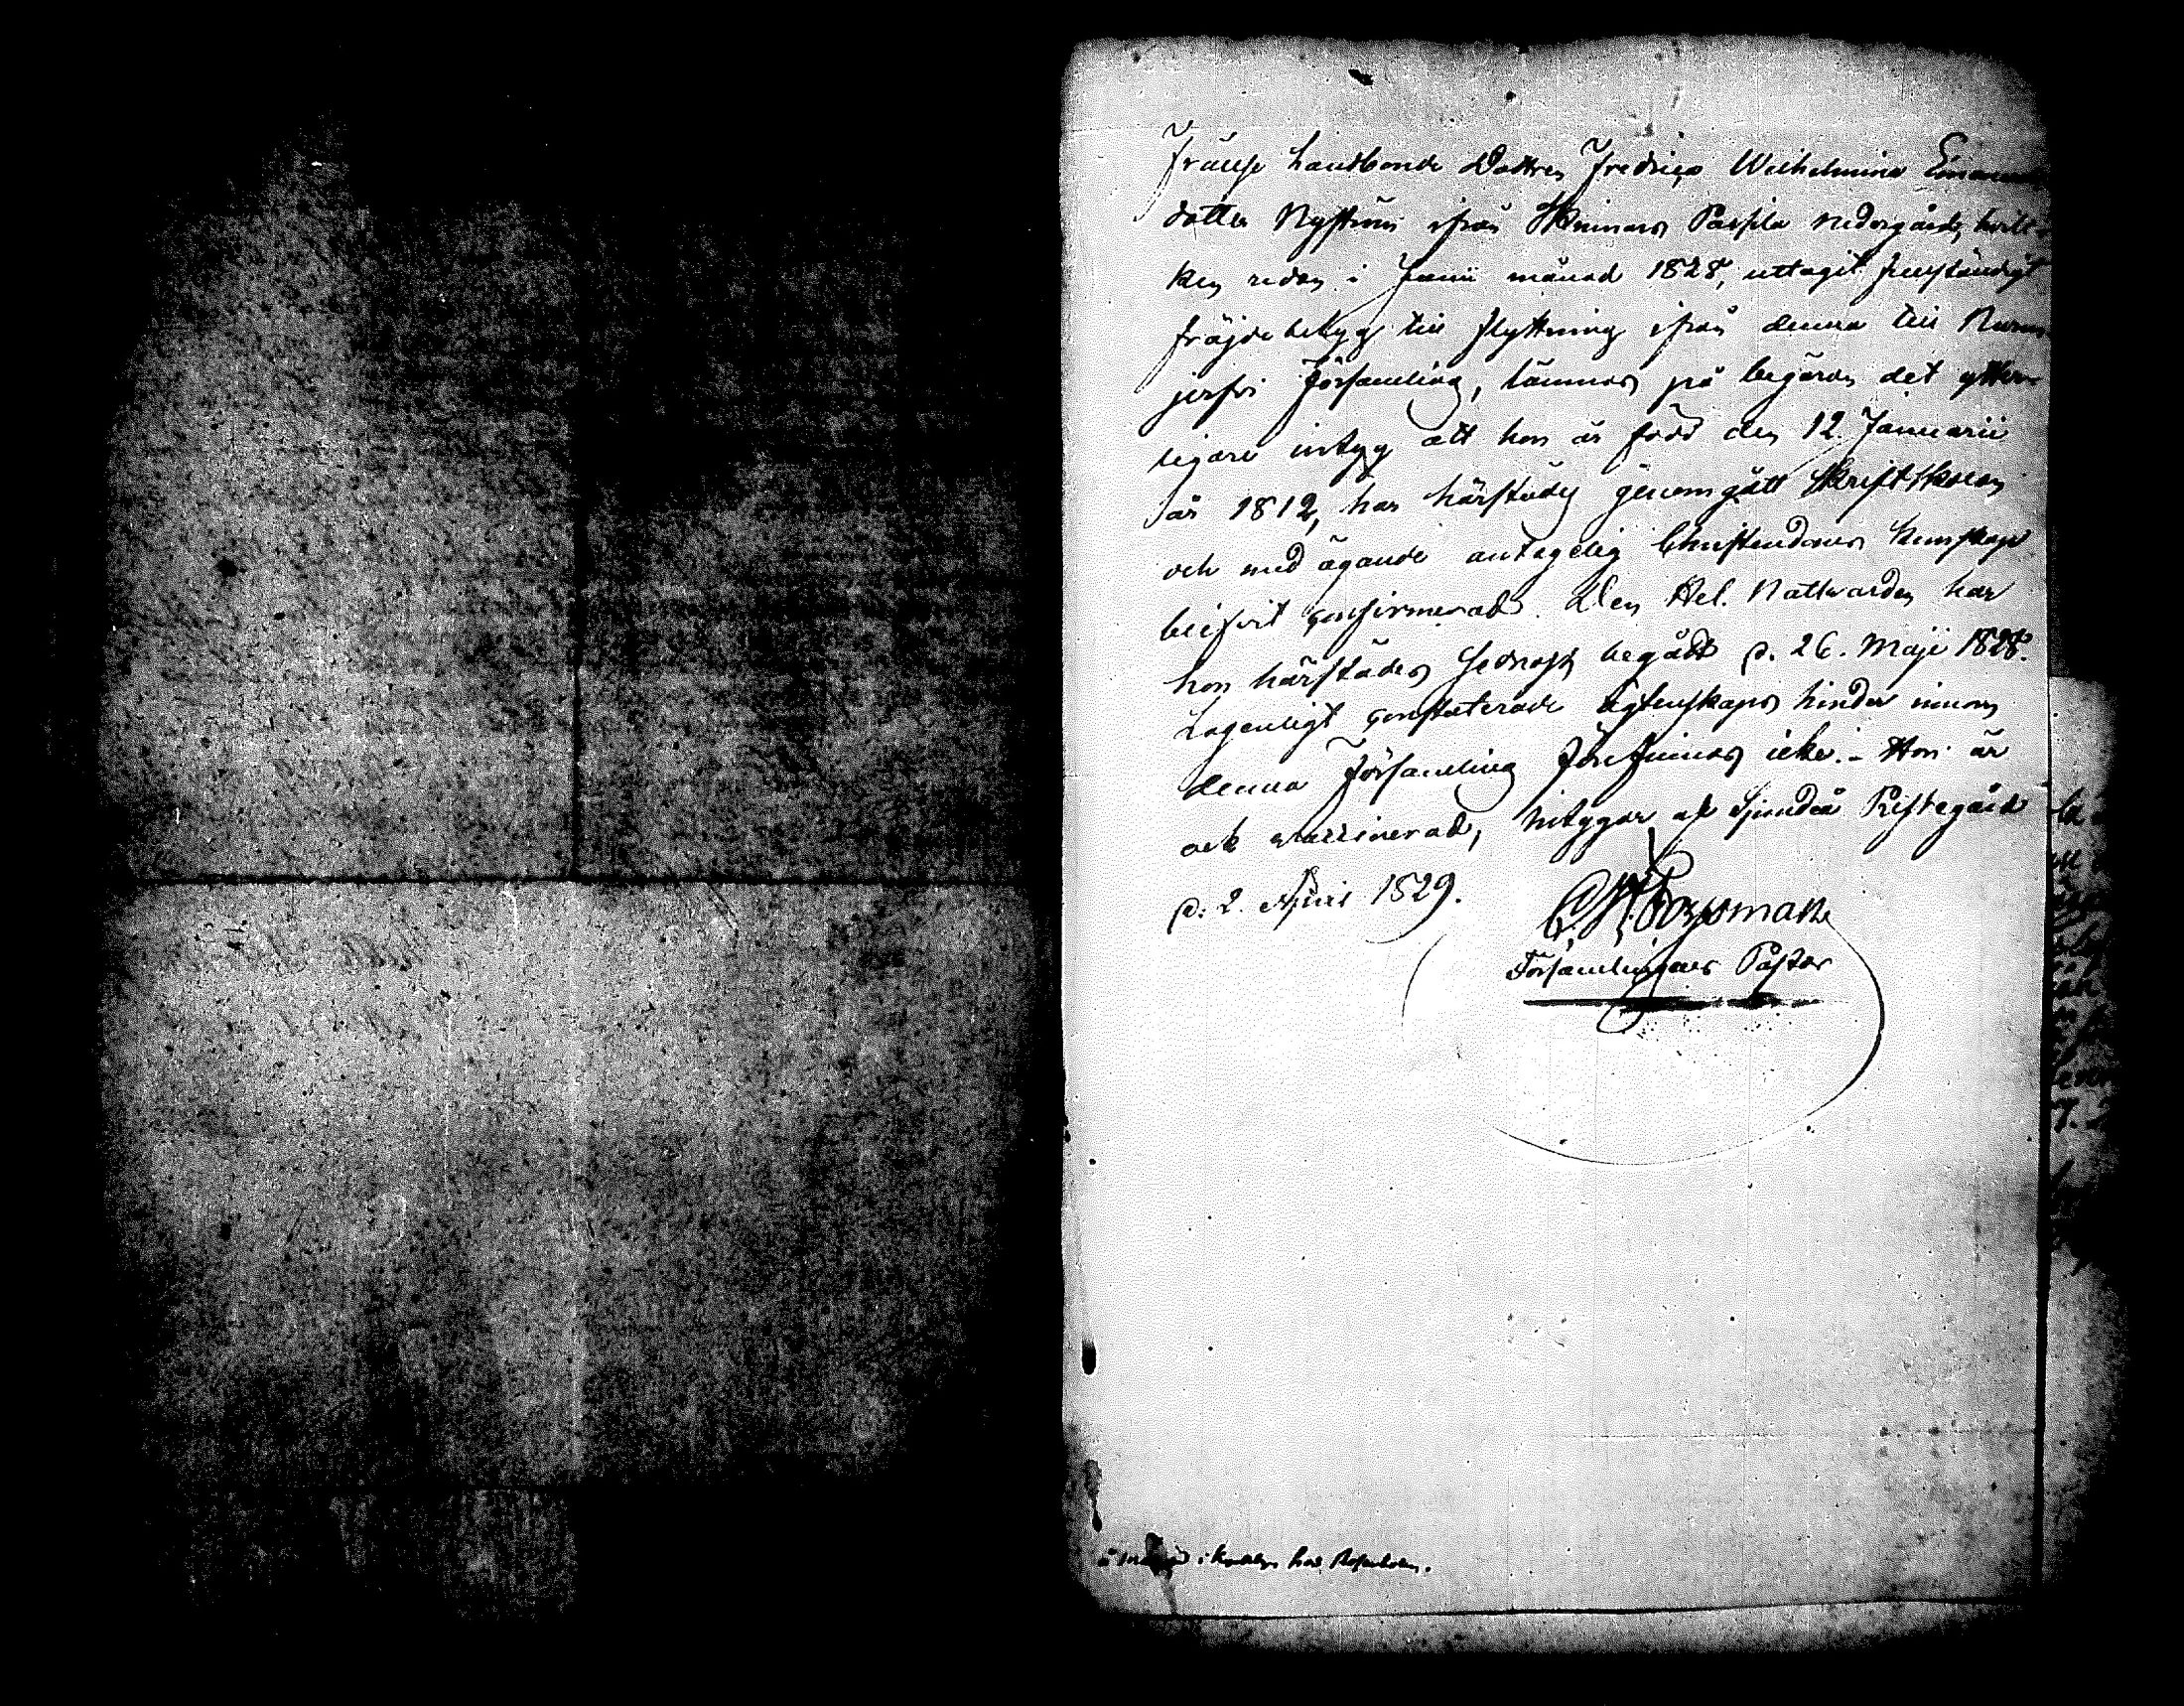 Frånse landbonde Dottren Fredrica Wilhelmina Emanuels
dotter Nyström ifrån Skinnars Passila Nedergård, hvil-
ken redan i Junii månad 1828, uttagit fullständigt
fräjdebetyg till flyttning ifrån denna till Num-
jerfvi Församling, lämnas på begäran det ytter-
ligare intyg att hon är född den 12 Januarii
år 1812, har härstädes genomgått Skriftskolan
och med ägande antagelig Christendoms kunskap
blifvit confirmerad. Den Hel. Nattvarden har
hon härstädes sednast begådt d. 26. Maji 1828.
Lagenligt constaterade ägtenskaps hinder innom
denna Församling förefinnas icke. - Hon är
ock vaccinerad, intygar af Sjundeå Prästegård
d. 2. April 1829.
Församlingens Pastor